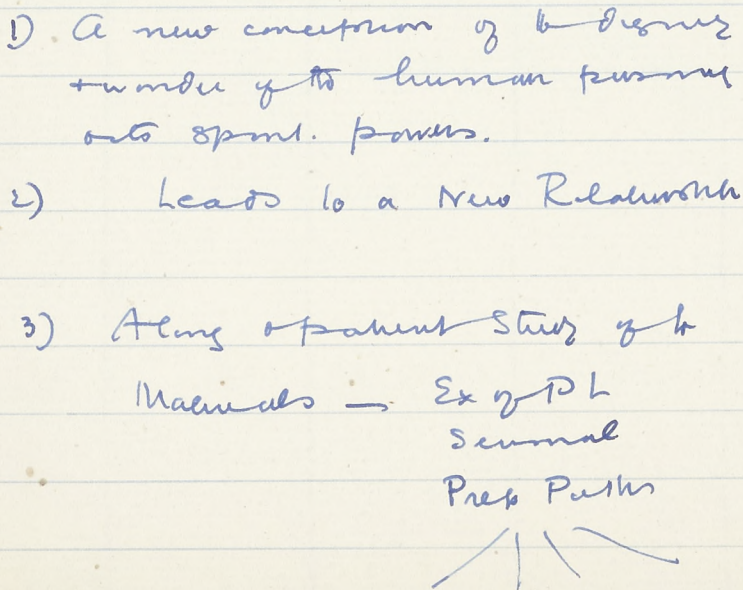 1) A new conception of the dignity
+ wonder of the human person
+ its spirit. powers.
2) Leads to a New Relationship
3) A long + patient Study of the
Materials — Ex of P L
Sensorial
Prep Paths